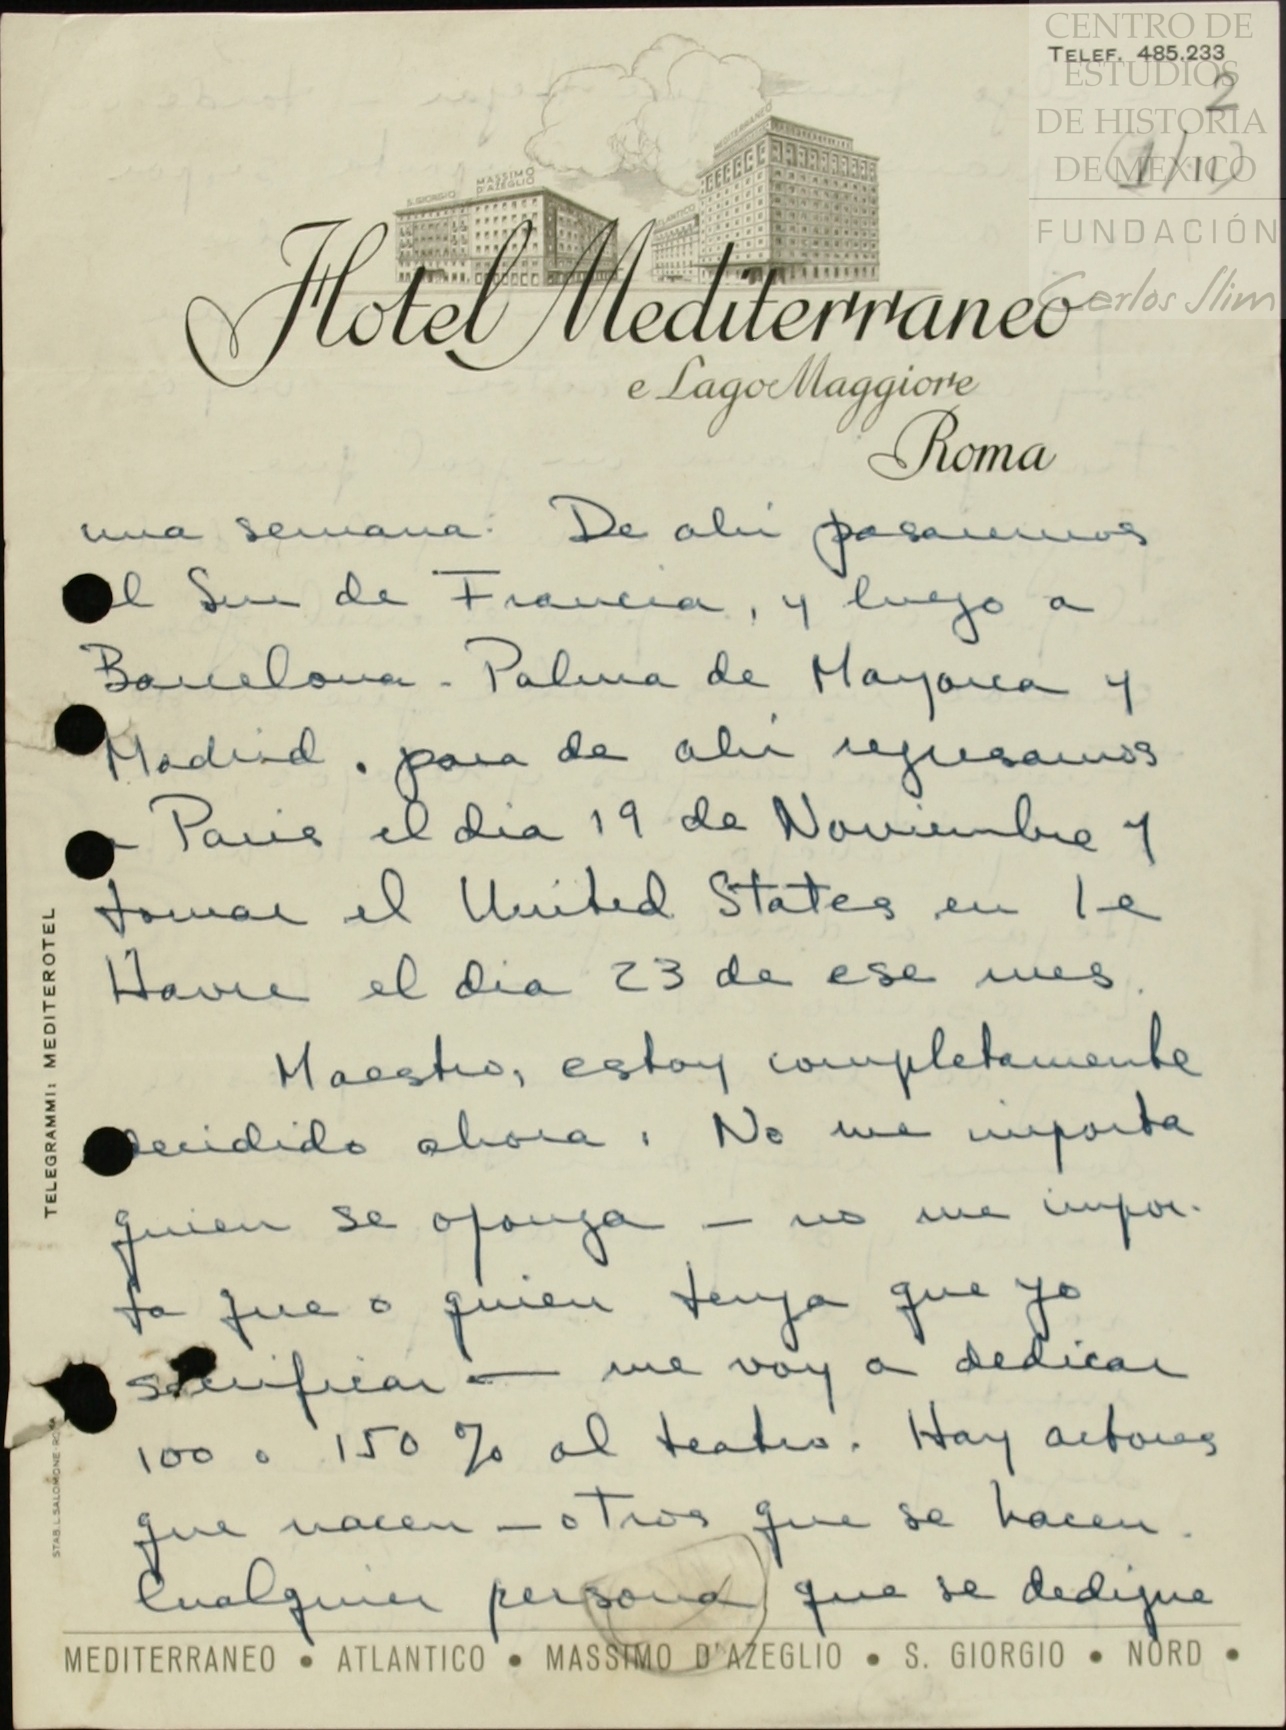 CENTRO DE
TELEF. 485.233
ESTUDIOS
2
DE HISTORIA
DE MEXICO
FUNDACIÓN
Carlos Slim
MEDITERRANEO
MASSIMO
D'AZEGLIO
S. GIORGIO
ATLANTICO
Hotel Mediterraneo
e Lago Maggiore
Roma
una semana. De ahi pasaremos
al Sur de Francia, y luego a
Barcelona - Palma de Mayorca y
Madrid. para de ahi regresarnos
a Paris el dia 19 de Noviembre y
tomar el United States en Le
Havre el dia 23 de ese mes.
Maestro, estoy completamente
decidido ahora. No me importa
quien se oponga — no me impor-
ta que o quien tenga que yo
sacrificar — me voy a dedicar
100 o 150 % al teatro. Hay actores
que nacen — otros que se hacen.
Cualquier persona que se dedique
TELEGRAMMI: MEDITEROTEL
STAB. L. SALOMONE - ROMA
MEDITERRANEO • ATLANTICO • MASSIMO D'AZEGLIO • S. GIORGIO • NORD •